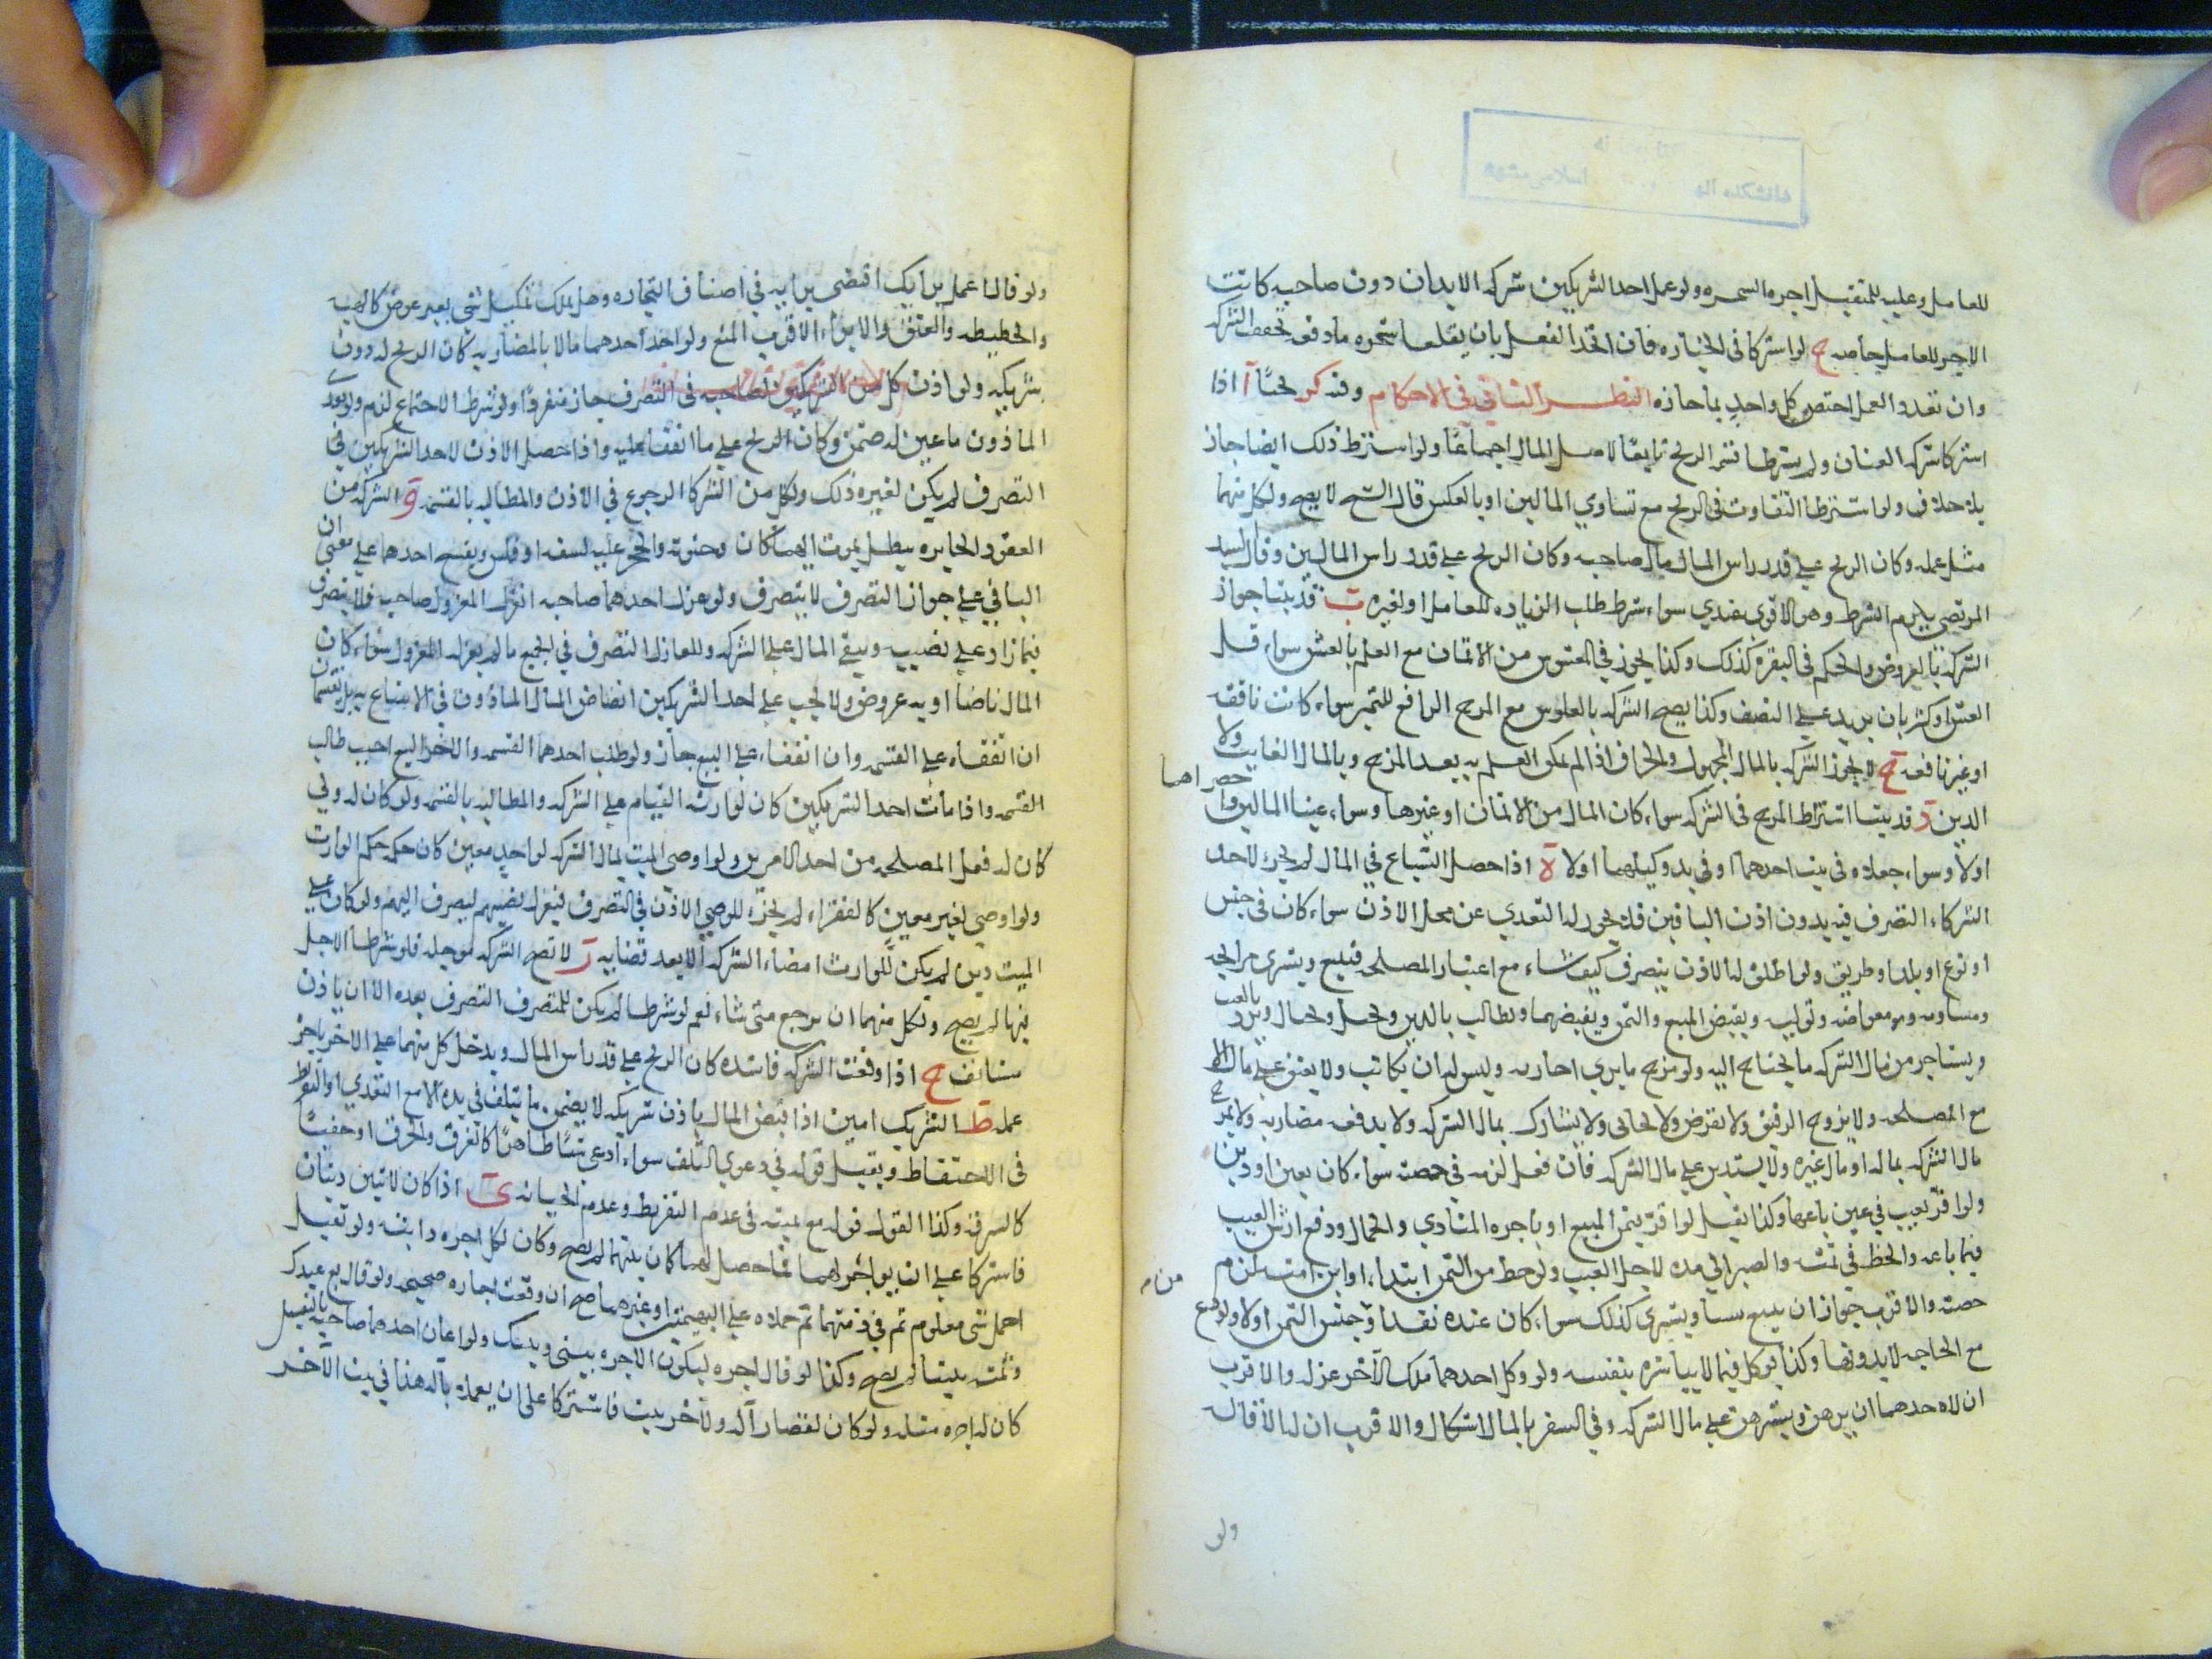 للعامل وعليه للمتقبل اجره السمسره ولو عمل احد الشريكين شركه الابدان دون صاحبه كانت
الاجره للعامل خاصه ح لو اشتركا في الحيازه فان اتحد الفعل بان يقلعا شجره ما دفعه تحققت الشركه
وان تعدد العمل اختص كل واحد بما حازه النظر الثاني في الاحكام وفيه كر بحثا آ اذا
اشتركا شركه العنان ولم يشترطا قدر الربح تابعا لاصل المال اجماعا ولو اشترط ذلك ايضا جاز
بلا خلاف ولو اشترطا التفاوت في الربح مع تساوي المالين او بالعكس قال الشيخ لا يصح ولكل منهما
مثل عمله وكان الربح على قدر راس المال مال صاحبه وكان الربح على قدر راس المالين وقال السيد
المرتضى يلزم الشرط وهو الاقوى عندي سواء شرط طلب الزياده للعامل او لغيره ب قد بينا جواز
الشركه بالعروض والحكم في النقره كذلك وكذا يجوز في المغشوش من الاثمان مع العلم بالغش سواء قل
الغش او كثر بان يزيد على النصف وكذا يصح الشركه بالفلوس مع المزج الرافع للتميز سواء كانت نافقه
او غير نافقه ج لا يجوز الشركه بالمال المجهول والجزاف اذا لم يمكن العلم به بعد المزج وبالمال الغايب ولا
الدين د قد بينا اشتراط المزج في الشركه سواء كان المال من الاثمان او غيرها وسواء عينا المالين واحضراهما
اولا وسواء جعلاه في بيت احدهما او في يد وكيلهما اولا ه اذا حصل الشياع في المال لم يجز لاحد
الشركاء التصرف فيه بدون اذن الباقين فلا يجوز له التعدي عن محل الاذن سواء كان في جنس
او نوع او بلد او طريق ولو اطلق له الاذن يتصرف كيف شاء مع اعتبار المصلحه فيبيع ويشتري مرابحه
ومساومه ومواضعه وتوليه ويقبض المبيع والثمن ويقبضهما ويطالب بالدين ويحيل ويحتال ويرد بالعيب
ويستاجر من مال الشركه ما يحتاج اليه ولو مزج ما يرى اجاره وليس له ان يكاتب ولا يعتق على مال الا
مع المصلحه ولا يزوج الرقيق ولا يقرض ولا يحابي ولا يشارك بمال الشركه ولا يدفعه مضاربه ولا يمزج
مال الشركه بماله او مال غيره ولا يستدين على مال الشركه فان فعل لزمه في حصته سواء كان بعين او دين
ولو اقر بعيب في عين باعها وكذا يقبل لو اقر بثمن المبيع او باجره المنادي والحمال ودفع ارش العيب
فيما باعه والحط في ثمنه والصبر الى مده لاجل العيب ولو حط من الثمن ابتداء او ابرا منه لزم من
حصته والاقرب جواز ان يبيع نسيا ويشتري كذلك سواء كان عنده نقدا وجنس الثمن اولا ولو
مع الحاجه لا بدونها وكذا يوكل فيما لا يباشره بنفسه ولو وكل احدهما ملك الآخر عزله والاقرب
ان لاحدهما ان يرهن ويسترهن على مال الشركه وفي السفر بالمال اشكال والاقرب ان له الاقاله
ولو
ولو قال اعمل برايك اقتضى برايه في اصناف التجاره وهل يملك تمليك شي بغير عوض كالهبه
والحطيطه والعتق والابراء الاقرب المنع ولو اخذ احدهما مالا بالمضاربه كان الربح له دون
شريكه ولو اذن كل من الشريكين لصاحبه في التصرف جاز منفردا ولو شرط الاجتماع لزم ولو تعدى
الماذون ما عين له ضمن وكان الربح على ما اتفقا عليه واذا حصل الاذن لاحد الشريكين في
التصرف لم يكن لغيره ذلك ولكل من الشركا الرجوع في الاذن والمطالبه بالقسمه و الشركه من
العقود الجايزه يبطل بموت ايهما كان وجنونه والحجر عليه لسفه او فلس ويفسخ احدهما على معنى ان
الباقي على جواز التصرف لا يتصرف ولو عزل احدهما صاحبه انعزل المعزول صاحبه فلا يتصرف
فيما زاد على نصيبه ويبقى المال على الشركه وللعازل التصرف في الجميع ما لم يعزله المعزول سواء كان
المال ناضا او به عروض ولا يجب على احد الشريكين انضاض المال الماذون في الابتياع به بل يقتسمان
ان اتفقا على القسمه وان اتفقا على البيع جاز ولو طلب احدهما القسمه والاخر البيع اجيب طالب
القسمه واذا مات احد الشريكين كان لوارثه القيام على الشركه والمطالبه بالقسمه ولو كان له ولي
كان له فعل المصلحه من احد الامرين ولو اوصى الميت بمال الشركه لواحد معين كان حكمه حكم الوارث
ولو اوصى لغير معين كالفقراء لم يجز للوصي الاذن في التصرف فيعزل نصيبهم ليصرف اليهم ولو كان على
الميت دين لم يكن للوارث امضاء الشركه الا بعد قضايه ز لا تصح الشركه موجله فلو شرطا الاجل
فيها لم يصح ولكل منهما ان يرجع متى شاء نعم لو شرطا لم يكن للمتصرف التصرف بعده الا ان ياذن
مستانف ح اذا وقعت الشركه فاسده كان الربح على قدر راس المال ويدخل كل منهما على الاخر باجر
عمله ط الشريك امين اذا قبض المال باذن شريكه لا يضمن ما يتلف في يده الا مع التعدي او التفريط
في الاحتفاظ ويقبل قوله في دعوى التلف سواء ادعى سببا ظاهرا كالغرق والحرق او خفيا
كالسرقه وكذا القول قوله مع يمينه في عدم التفريط وعدم الخيانه ى اذا كان لاثنين دابتان
فاشتركا على ان يواجراهما فما حصل لهما كان بينهما لم يصح وكان لكل اجره دابته ولو تقبل
احمل شي معلوم ثم في ذمتهما ثم حملاه على البهيمتين او غيرهما صح ان وقعت بجاره صحيحه ولو قال بع عبدك
وثمنه بيننا لم يصح وكذا لو قال اجره ليكون الاجره بيني وبينك ولو اعان احدهما صاحبه بالتقبل
كان له اجره مثله ولو كان لقصار آله ولآخر بيت فاشتركا على ان يعملا بآله هذا في بيت الآخر